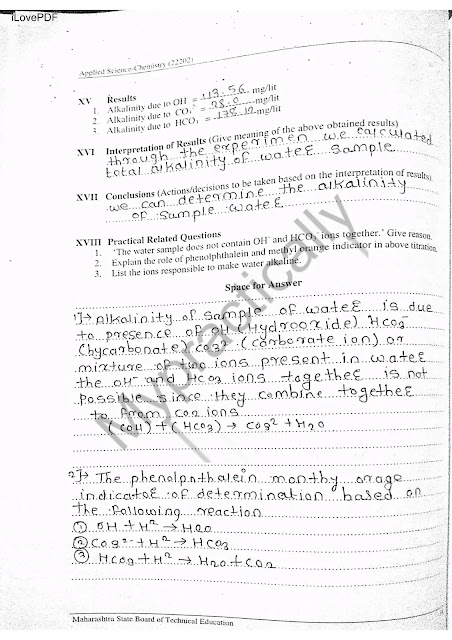 iLovePDF
Applied Science-Chemistry (22202)
XV Results
1. Alkalinity due to OH⁻ = 13.56 mg/lit
2. Alkalinity due to CO₃⁻ = 28.0 mg/lit
3. Alkalinity due to HCO₃ = 178.12 mg/lit
XVI Interpretation of Results (Give meaning of the above obtained results)
through the experimen we calculated
total alkalinity of wateE sample
XVII Conclusions (Actions/decisions to be taken based on the interpretation of results)
we can determine the alkalinity
of sample wateE
XVIII Practical Related Questions
1. 'The water sample does not contain OH⁻ and HCO₃⁻ ions together.' Give reason.
2. Explain the role of phenolphthalein and methyl orange indicator in above titration.
3. List the ions responsible to make water alkaline.
Space for Answer
1]→ Alkalinity of sample of wateE is due
to presence of OH (Hydrooxide) Hco3⁻
(bycarbonate) co32⁻ (corborate ion) or
mixture of two ions present in wateE
the OH⁻ and Hco3 ions togetheE is not
possible since they combine togetheE
to from co2 ions
(COH) + (HCO3) → CO3² + H2O
2]→ The phenolpnthalein monthy orage
indicatoE of determination based on
the following reaction
① OH + H² → H2O
② CO3²⁻ + H² → HCO3
③ HCO3 + H² → H2O + CO2
Mypractically
Maharashtra State Board of Technical Education